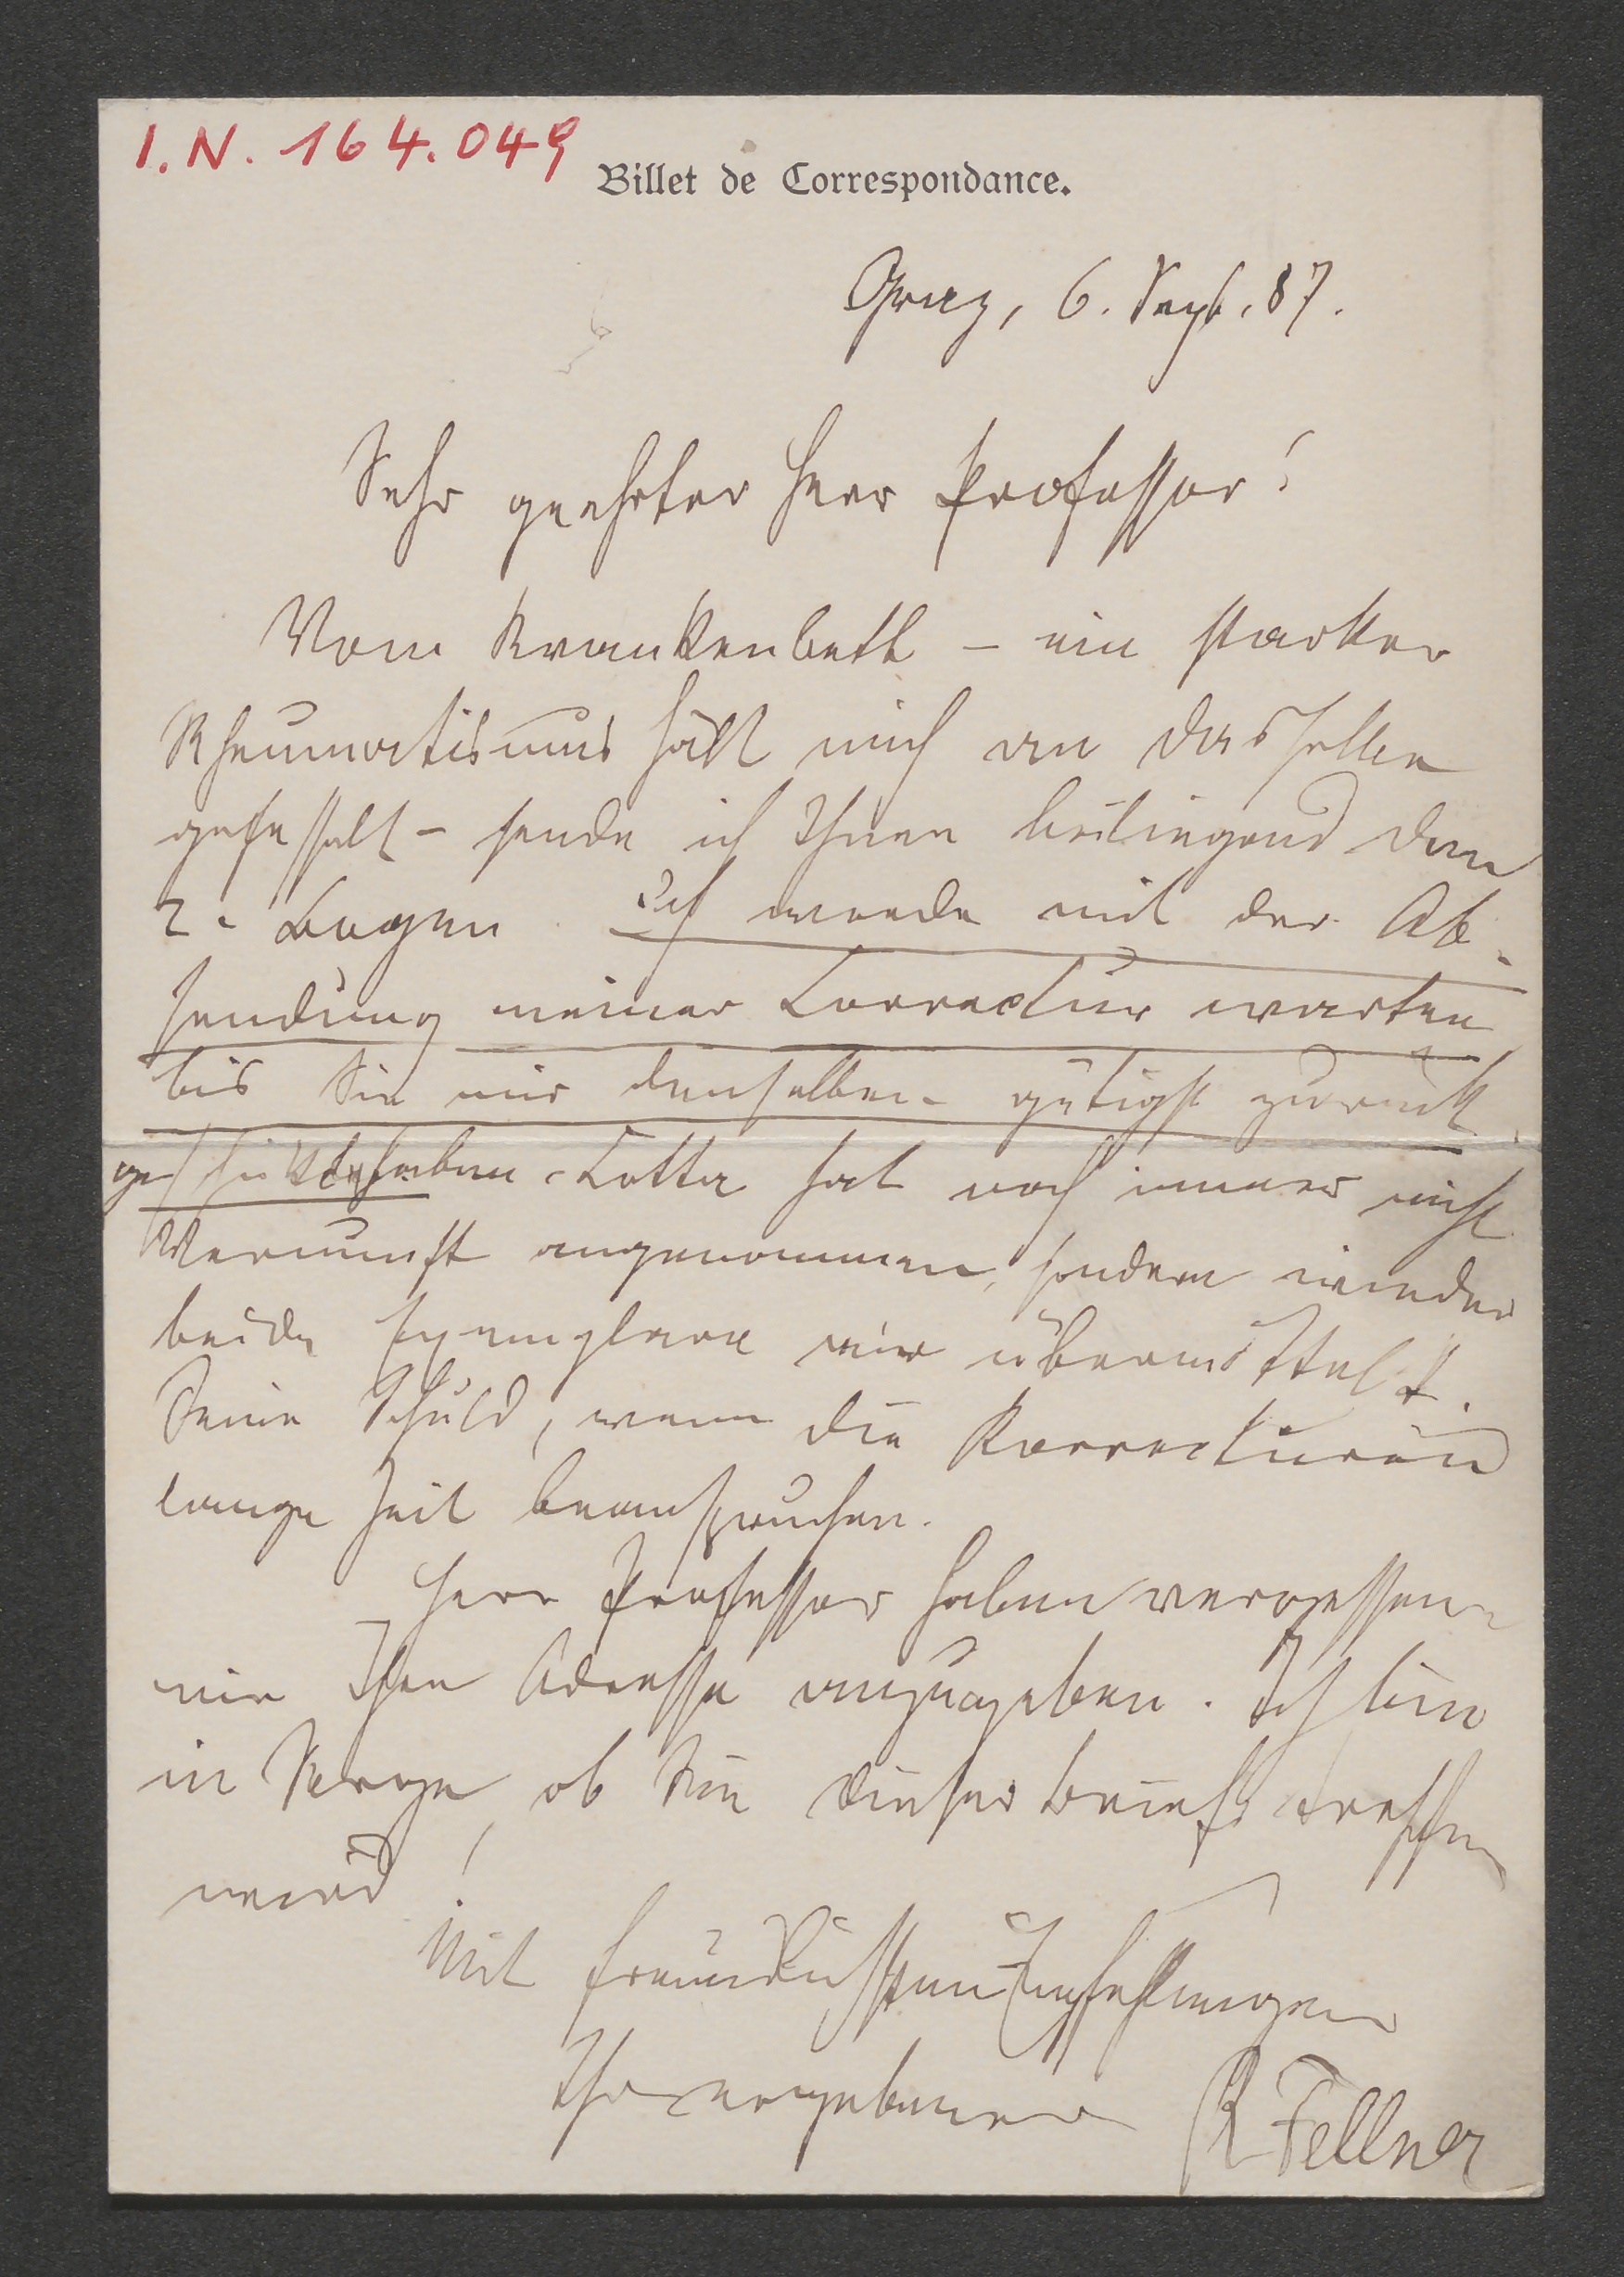 I.N. 164.049
Billet de Correspondance.
Graz, 6. Sept. 87.
Sehr geehrter Herr Professor!
Vom Krankenbett – ein starker
Rheumatismus hält mich an dasselbe
gefesselt – sende ich Ihnen beiliegend den
2. Bogen. Ich werde mit der Ab-
sendung meiner Correctur warten
bis Sie mir denselben gütigst zurück
geschickt haben. Cotta hat noch immer nicht
Vernunft angenommen, sondern wieder
beide Exemplare mir übermittelt.
Seine Schuld, wenn die Korrecturen
lange Zeit beanspruchen.
Herr Professor haben vergessen
mir Ihre Adresse anzugeben. Ich bin
in Sorge, ob Sie dieser Brief treffen
wird!
Mit freundlichsten Empfehlungen
Ihr ergebener
R Fellner